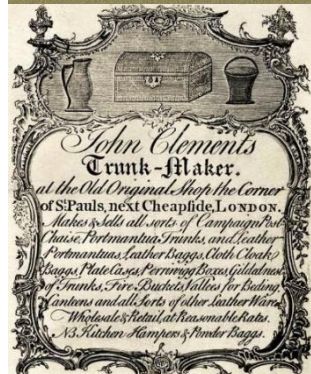 John Clements
Trunk-Maker.
at the Old Original Shop the Corner
of St. Pauls, next Cheapſide, LONDON.
Makes & Sells all sorts of Campaign Post
Chaise, Portmantua Trunks, and Leather
Portmantuas, Leather Baggs, Cloth Cloak
Baggs, Plate Cases, Perriwigg Boxes,
of Trunks, Fire Buckets Vallees for Beding,
Canteens and all Sorts of other Leather Ware
Wholesale & Retail, at Reasonable Rates.
NB Kitchen Hampers & Powder Baggs.